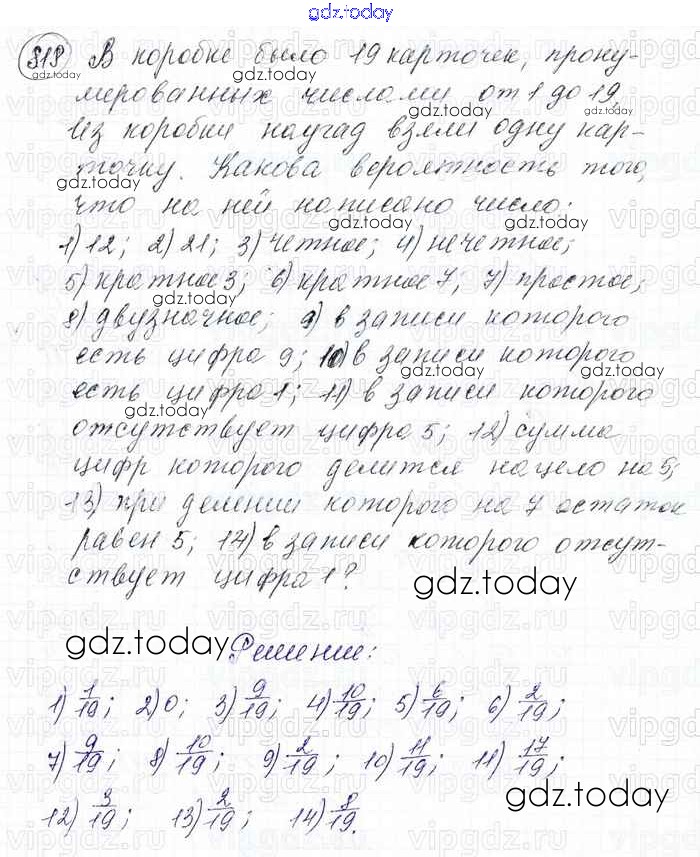 gdz.today
818 В коробке было 19 карточек, прону-
gdz.today
мерованных числами от 1 до 19.
Из коробки наугад взяли одну кар-
точку. Какова вероятность того,
что на ней написано число:
1) 12; 2) 21; 3) четное; 4) нечетное;
5) кратное 3; 6) кратное 7; 7) простое;
8) двузначное; 9) в записи которого
есть цифра 9; 10) в записи которого
есть цифра 1; 11) в записи которого
отсутствует цифра 5; 12) сумма
цифр которого делится нацело на 5;
13) при делении которого на 7 остаток
равен 5; 14) в записи которого отсут-
ствует цифра 1?
gdz.today
gdz.today Решение:
1) 1/19; 2) 0; 3) 9/19; 4) 10/19; 5) 6/19; 6) 2/19;
7) 9/19; 8) 10/19; 9) 2/19; 10) 11/19; 11) 17/19;
gdz.today
12) 3/19; 13) 2/19; 14) 8/19.